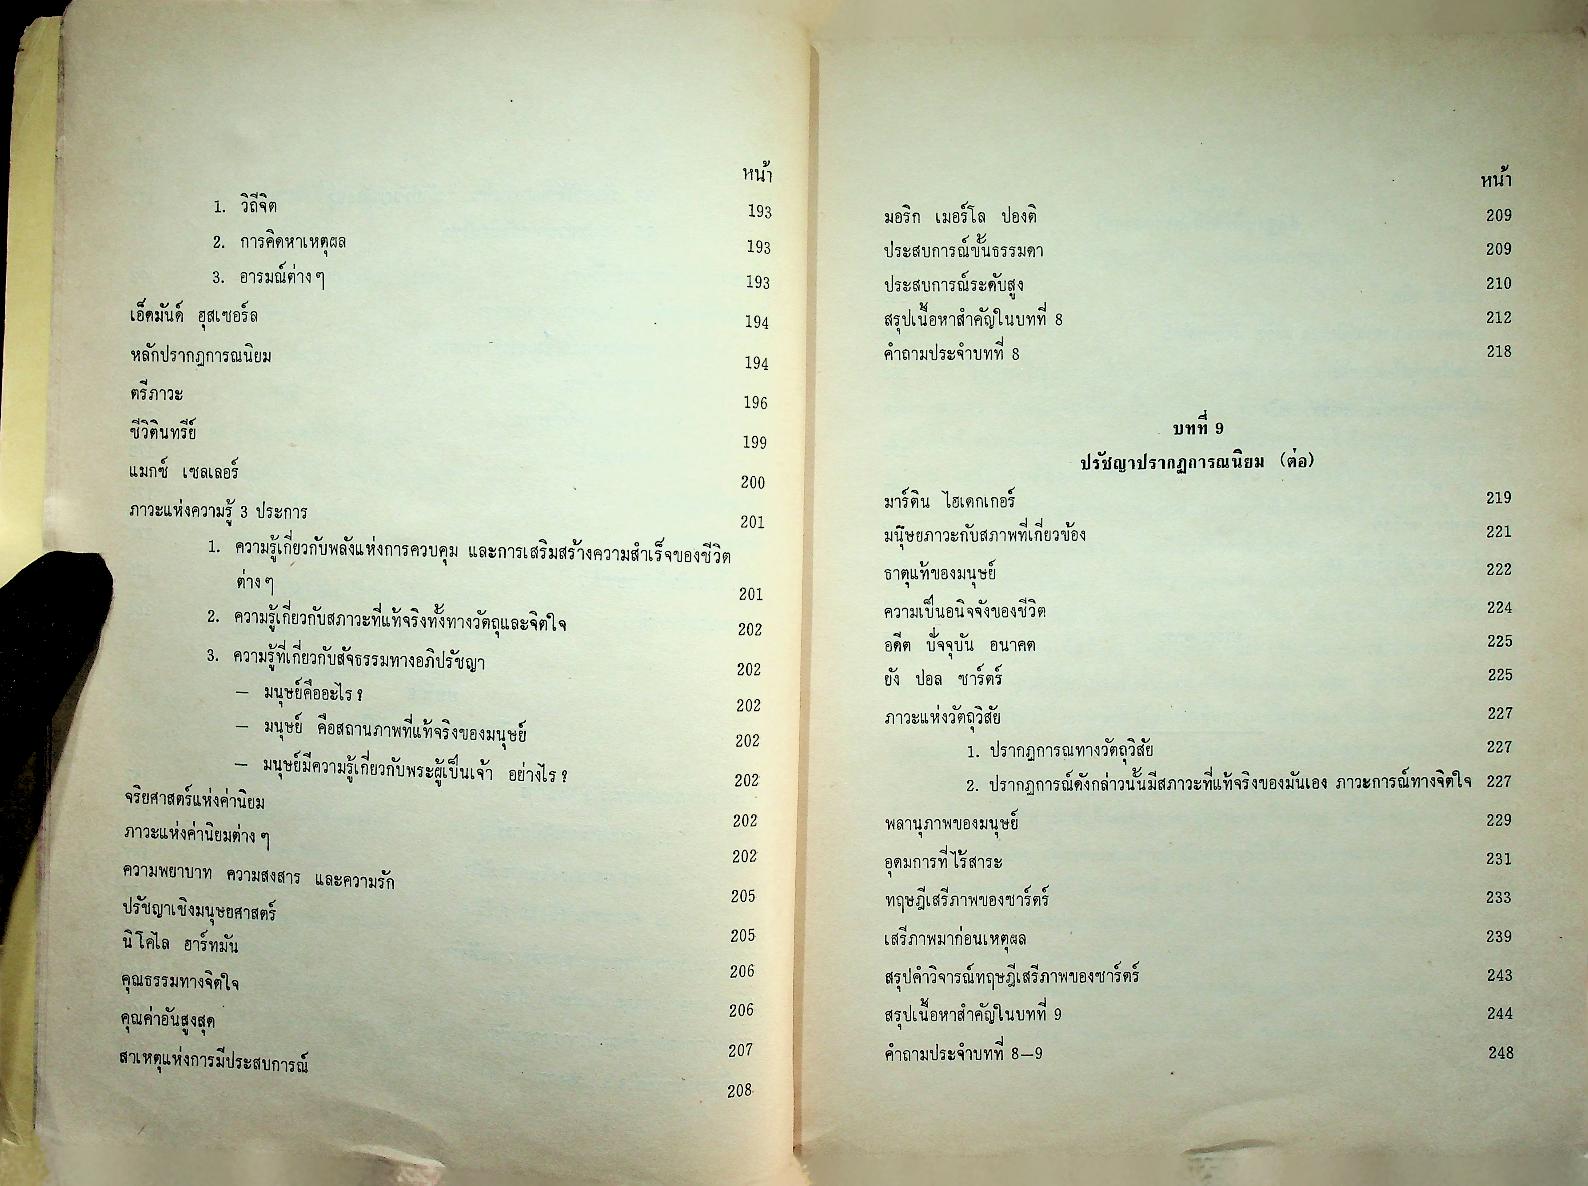 หน้า
1. วิถีจิต 193
2. การคิดหาเหตุผล 193
3. อารมณ์ต่าง ๆ 193
เอ็ดมันด์ ฮุสเซอร์ล 194
หลักปรากฏการณนิยม 194
ตรีภาวะ 196
ชีวิตินทรีย์ 199
แมกซ์ เซลเลอร์ 200
ภาวะแห่งความรู้ 3 ประการ 201
1. ความรู้เกี่ยวกับพลังแห่งการควบคุม และการเสริมสร้างความสำเร็จของชีวิต
ต่าง ๆ 201
2. ความรู้เกี่ยวกับสภาวะที่แท้จริงทั้งทางวัตถุและจิตใจ 202
3. ความรู้ที่เกี่ยวกับสัจธรรมทางอภิปรัชญา 202
— มนุษย์คืออะไร ? 202
— มนุษย์ คือสถานภาพที่แท้จริงของมนุษย์ 202
— มนุษย์มีความรู้เกี่ยวกับพระผู้เป็นเจ้า อย่างไร ? 202
จริยศาสตร์แห่งค่านิยม 202
ภาวะแห่งค่านิยมต่าง ๆ 202
ความพยาบาท ความสงสาร และความรัก 205
ปรัชญาเชิงมนุษยศาสตร์ 205
นิโคไล ฮาร์ทมัน 206
คุณธรรมทางจิตใจ 206
คุณค่าอันสูงสุด 207
สาเหตุแห่งการมีประสบการณ์ 208
หน้า
มอริก เมอร์โล ปองติ 209
ประสบการณ์ขั้นธรรมดา 209
ประสบการณ์ระดับสูง 210
สรุปเนื้อหาสำคัญในบทที่ 8 212
คำถามประจำบทที่ 8 218
บทที่ 9
ปรัชญาปรากฏการณนิยม (ต่อ)
มาร์ติน ไฮเดกเกอร์ 219
มนุษยภาวะกับสภาพที่เกี่ยวข้อง 221
ธาตุแท้ของมนุษย์ 222
ความเป็นอนิจจังของชีวิต 224
อดีต ปัจจุบัน อนาคต 225
ยัง ปอล ซาร์ตร์ 225
ภาวะแห่งวัตถุวิสัย 227
1. ปรากฏการณทางวัตถุวิสัย 227
2. ปรากฏการณ์ดังกล่าวนั้นมีสภาวะที่แท้จริงของมันเอง ภาวะการณ์ทางจิตใจ 227
พลานุภาพของมนุษย์ 229
อุดมการที่ไร้สาระ 231
ทฤษฎีเสรีภาพของซาร์ตร์ 233
เสรีภาพมาก่อนเหตุผล 239
สรุปคำวิจารณ์ทฤษฎีเสรีภาพของซาร์ตร์ 243
สรุปเนื้อหาสำคัญในบทที่ 9 244
คำถามประจำบทที่ 8—9 248